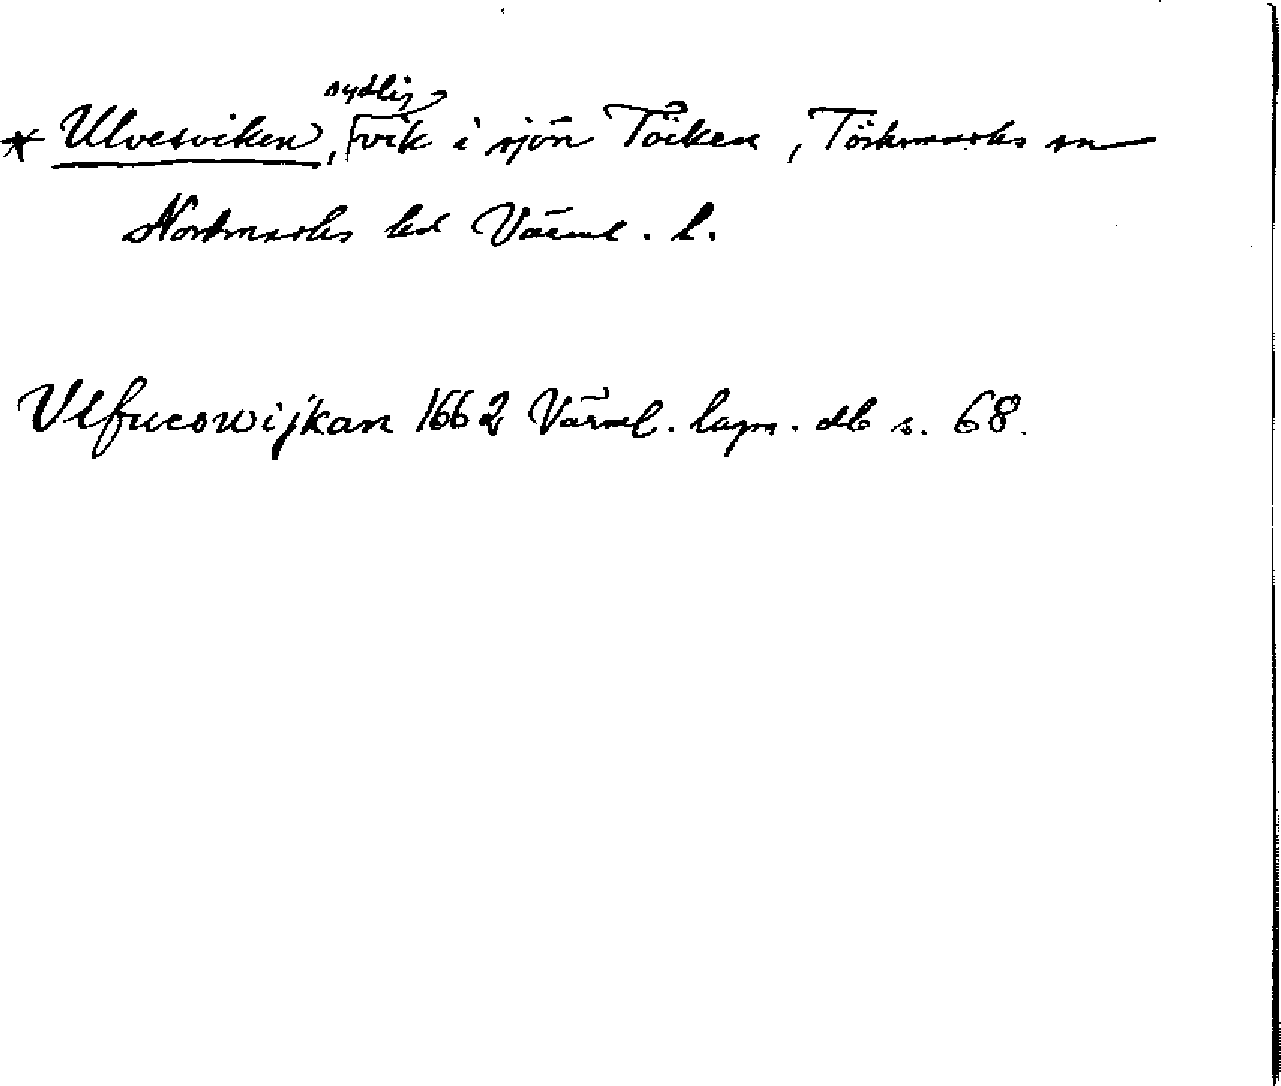 * Ulvesviken, sydlig vik i sjön Töcken, Töcksmarks sn
Nordmarks hd Värml. l.
Vlfuesowijkan 1662 Värml. lagm. db s. 68.